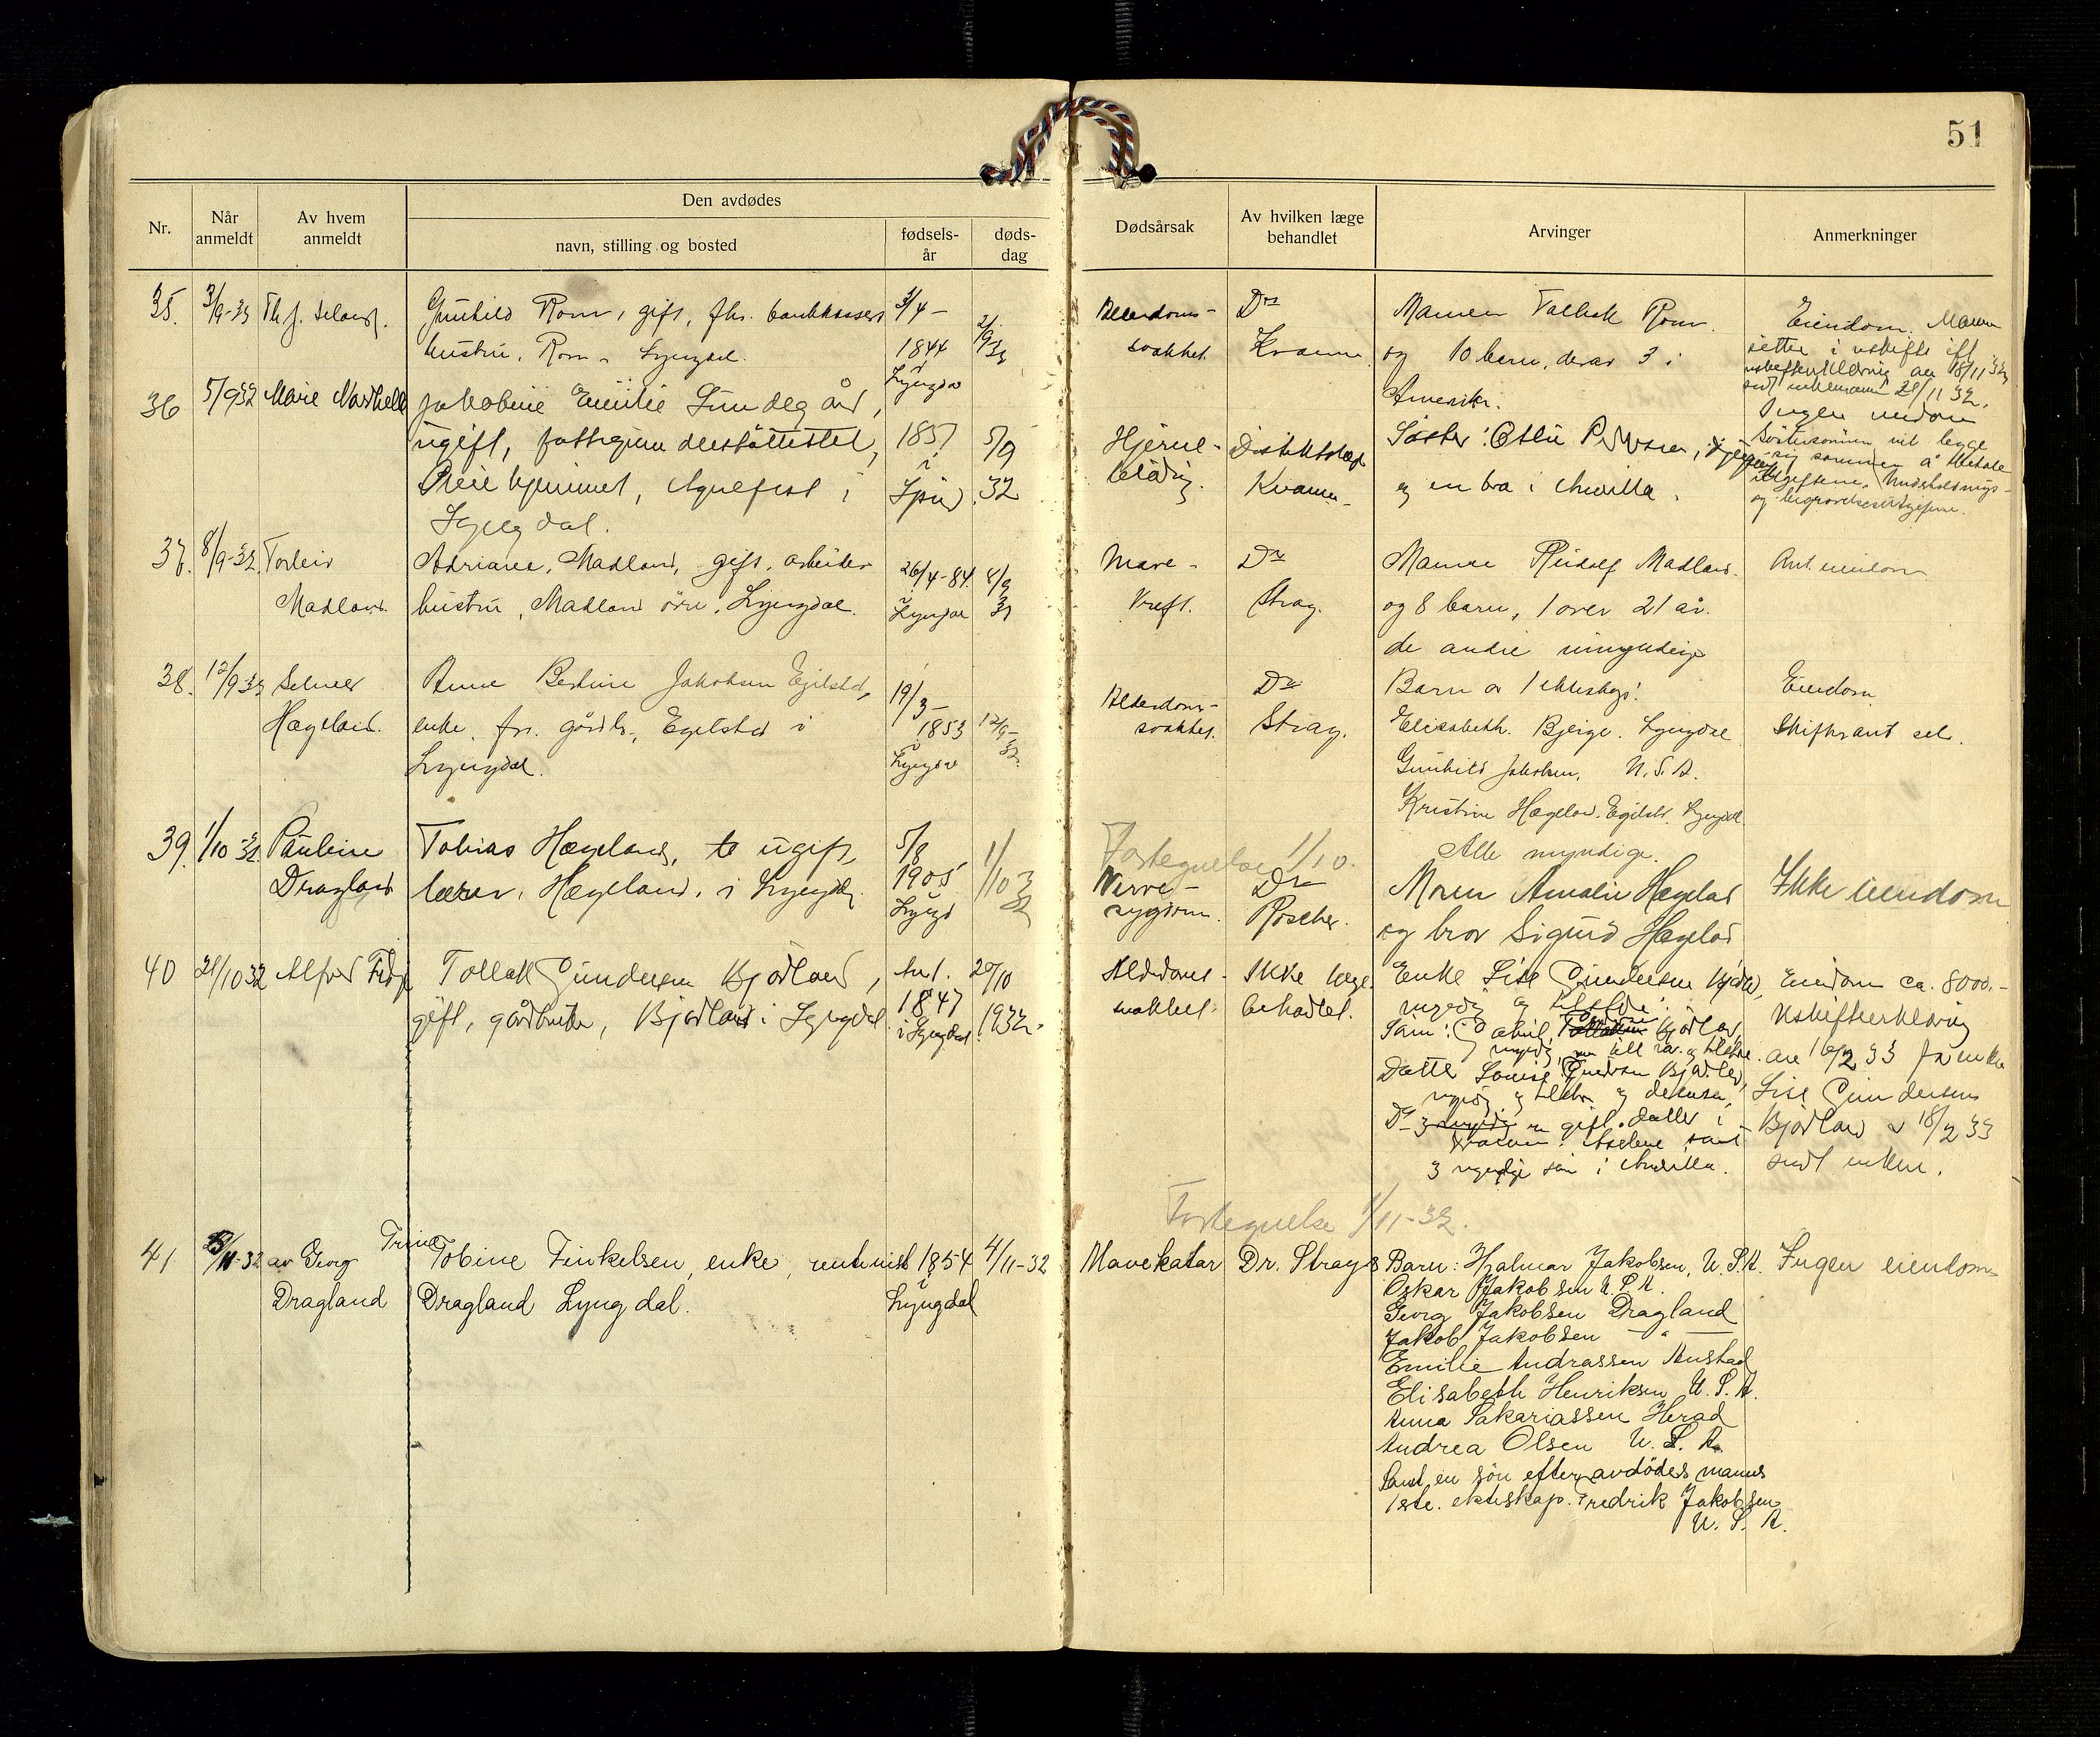 51
Nr.
Når
anmeldt
Av hvem
anmeldt
Den avdødes
navn, stilling og bosted
fødsels-
år
døds-
dag
Dødsårsak
Av hvilken læge
behandlet
Arvinger
Anmerkninger
35.
Gunhild Rom, gift, fhv.
hustru, Rom - Lyngdal.
3/4 -
1844
i
Lyngdal
Alderdoms-
svakhet.
Dr
Kvamme
Mannen Tallak Rom.
og 10 barn, derav 3 i
Amerika.
Eiendom. Mannen
sitter i uskifte ifl.
uskifteerklæring av 18/11 32
36
5/9 32
Marie
Jakobine Emilie
ugift, fattigunderstøttettet,
Pleiehjemmet, Agnefest i
Lyngdal.
1857
i
5/9
32
Hjerne-
blødning.
Distriktslæge
Kvamme
Søster:
og en bror i Amerika.
Ingen eiendom
Søstersønnen vil legge
sig sammen å betale
utgiftene.
og begravelsesutgiftene.
37.
8/9-32.
Torleiv
Madland.
Adriane Madland, gift, arbeider
hustru, Madland øvre, Lyngdal.
26/4-84.
i
Lyngdal
Mave-
kreft.
Dr
Stray.
Mannen Rudolf Madland.
og 8 barn, 1 over 21 år.
de andre umyndige
Ant. eiendom
38.
12/9 32
Selmer
Hægeland.
Anne Bertine Jakobsen Egilstad,
enke, fhv. gårdbr., Egelstad i
Lyngdal.
19/3 -
1853
i
Lyngdal
12/9-
32.
Alderdoms-
svakhet.
Dr
Stray.
Barn av 1 ekteskap:
Elisabeth Bjerge. Lyngdal
Gunhild Jakobsen, U.S.A.
Kristine Hægeland. Egilstd. Lyngdal.
Alle myndige.
Eiendom
39.
1/10 32
Pauline
Dragland
Tobias Hægeland, ugift,
lærer, Hægeland, i Lyngdal.
5/8
1905
i
Lyngd
1/10
32
Fortegnelse 1/10.
Nerve-
sygdom.
Dr
Roscher.
Moren Amalie Hægeland
og bror Sigurd Hægeland
Ikke eiendom
40
21/10 32
Alfred
Tollak Gundersen Bjørland,
gift, gårdbruker, Bjørland i Lyngdal
Ant.
1847
i Lyngdal.
20/10
1932.
Alderdoms-
svakhet.
Ikke læge
behandlet.
Enke Lise Gundersen Bjørland,
Datter Louise Gundersen Bjørland,
3 myndige søn i Amerika.
Eiendom ca. 8000.-
Uskifteerklæring
av 16/2 33 fra enke
Lise Gundersen
Bjørland 18/2 33
sendt enken.
Fortegnelse 1/11-32.
41
av Georg
Dragland
Trine
Tobine Finkelsen, enke, rentenist
Dragland Lyngdal.
1854
i
Lyngdal
4/11-32
Mavekatar
Dr. Strays
Barn: Hjalmar Jakobsen, U.S.A.
Oskar Jakobsen U.S.A.
Georg Jakobsen Dragland
Jakob Jakobsen — " —
Emilie Andrassen Austad
Elisabeth Henriksen U.S.A.
Anna Sakariassen Herad
Andrea Olsen U.S.A.
Samt en søn efter avdødes manns
1ste. ekteskap. Fredrik Jakobsen
U.S.A.
Ingen eiendom